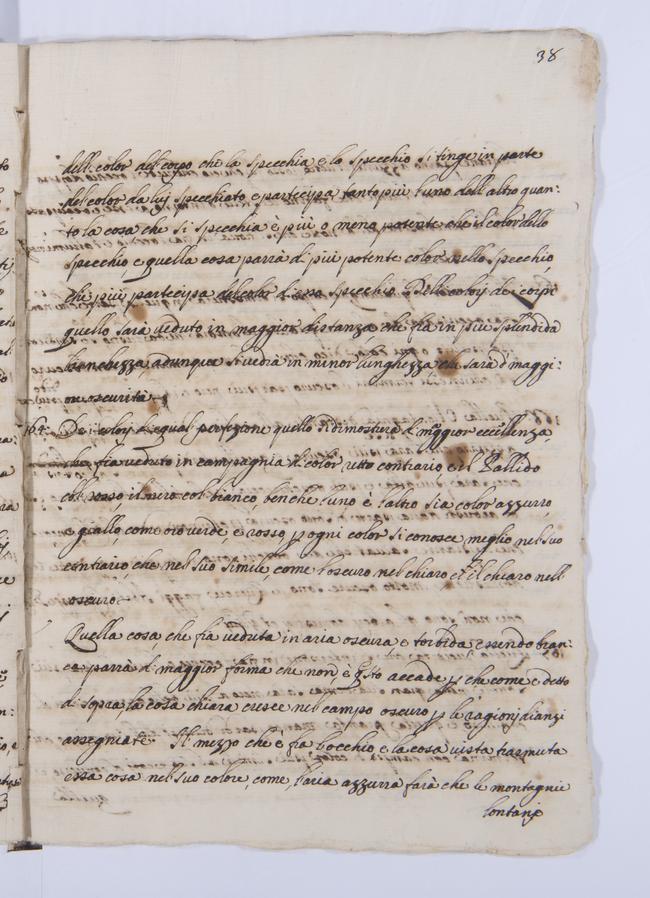 38
dell color del corpo che la specchia e lo specchio si tinge in parte
del color da luj specchiato e partecipa tanto più l'uno dall altro quan:
to la cosa che si specchia è più o meno potente che il color dello
specchio e quella cosa parrà di più potente color nello specchio,
che più partecipa del color d'esso specchio. Delli colorj de corpi
quello sarà veduto in maggior distanza, che fia in più splendida
bianchezza, adunque si vedrà in minor lunghezza che sarà d maggi:
ore oscurità
De colorj d equal perfezione quello si dimosterà d maggior eccellenza,
che fia veduto in compagnia d color retto contrario, e il Pallido
col rosso, il nero col bianco, benche l'uno è l'altro sia color azzurro,
e giallo come oro verde e rosso, p ogni color si conosce meglio nel suo
contrario, che nel suo simile, come l'oscuro nel chiaro et il chiaro nell
oscuro
Quella cosa, che fia veduta in aria oscura e torbida essendo bian:
ca parrà d maggior forma che non è, qsto accade, p che come e detto
d sopra, la cosa chiara cresce nel campo oscuro, p le ragionj dianzi
assegniate. Il mezzo che e fia l'occhio e la cosa vista trasmuta
essa cosa nel suo colore, come l'aria azzurra farà che le montagnie
lontane